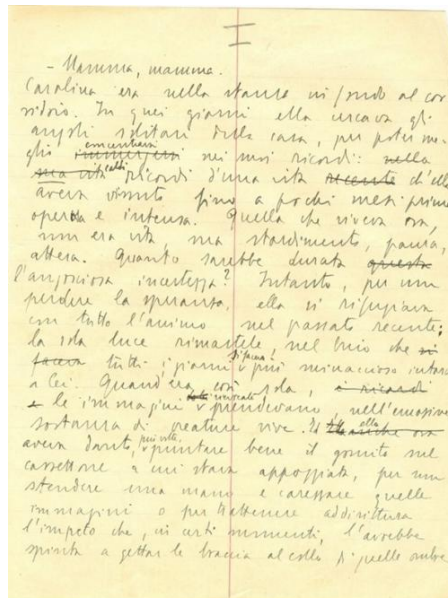 I
- Mamma, mamma.
Carolina era nella stanza in fondo al cor
ridoio. In quei giorni ella cercava gli
angoli solitari della casa, per poter me-
glio concentrarsi nei suoi ricordi: nella
sua vita ricordi d'una vita recente ch'ella
aveva vissuto fino a pochi mesi prima
operosa e intensa. Quella che viveva ora,
non era vita, ma stordimento, paura,
attesa. Quanto sarebbe durata questa
l'angosciosa incertezza? Intanto, per non
perdere la speranza, ella si rifugiava
con tutto l'animo nel passato recente:
la sola luce rimastale nel buio che si
faceva tutti i giorni più minaccioso intorno
a lei. Quand'era così sola, i ricordi
e le immagini prendevano, nell'emozione
sostanza di creature vive. Ed ella
aveva dovuto, più volte, puntare bene il gomito sul
cassettone a cui stava appoggiata, per non
stendere una mano e carezzare quelle
immagini o per trattenere addirittura
l'impeto che, in certi momenti, l'avrebbe
spinta a gettar le braccia al collo di quelle ombre